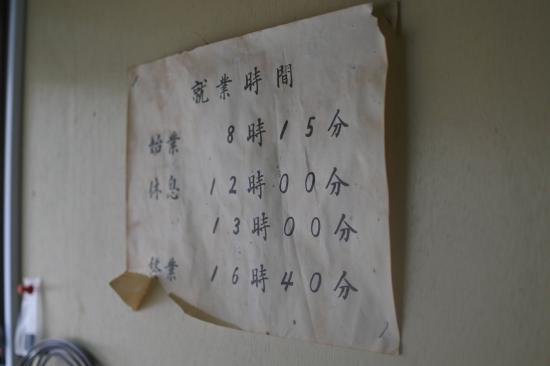 就業時間
始業 8時15分
休息 12時00分
13時00分
終業 16時40分